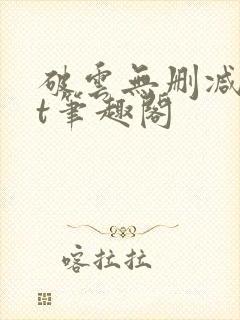 破雲無刪减
t筆趣閣
喀拉拉